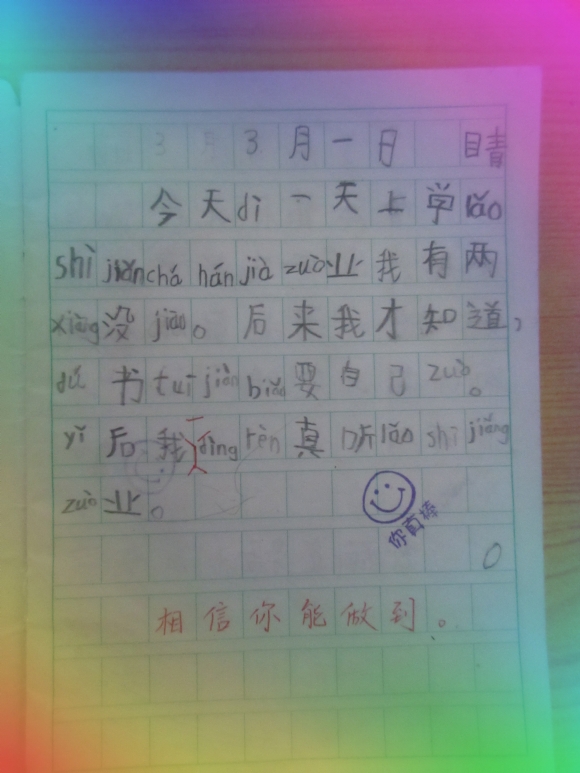 3月一日 晴
今天dì一天上学lǎo
shī jiǎn chá hán jià zuò业我有两
xiàng没jiāo。后来我才知道，
dú书tuī jiàn biǎo要自己zuò。
yǐ后我一dìng rèn真听lǎo shī jiǎng
zuò业。
你真棒
相信你能做到。